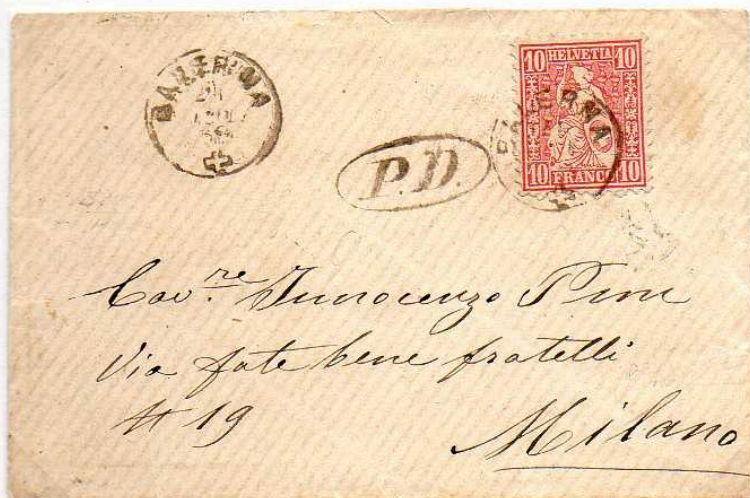 BALERNA
10 HELVETIA 10
BALERNA
10 FRANCO 10
P.D.
Cav.re Innocenzo Pini
Via fate bene fratelli
# 19
Milano